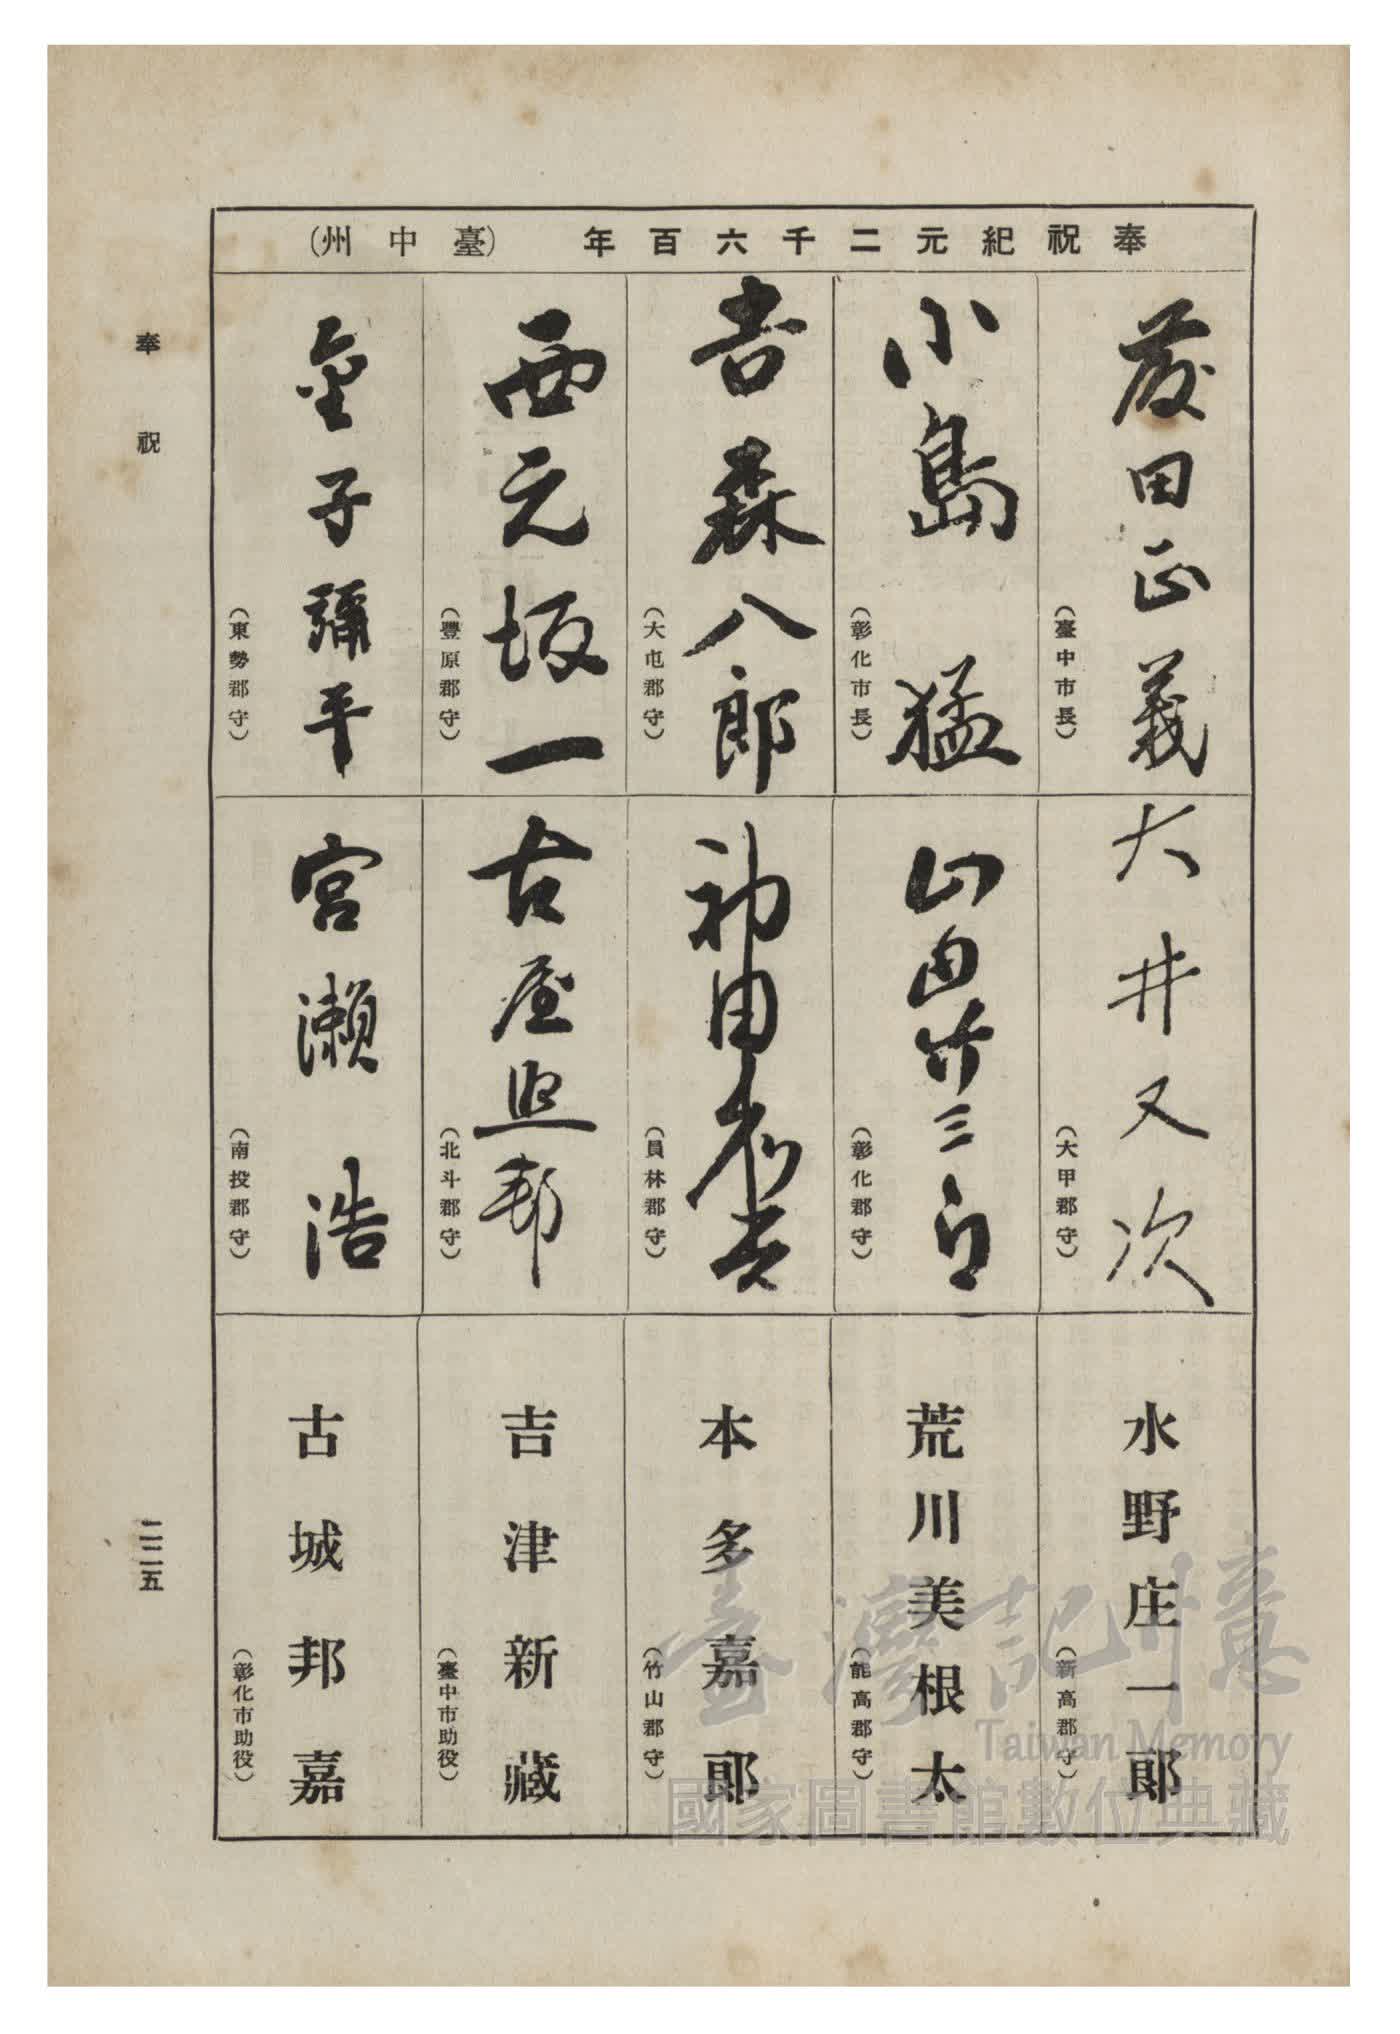 奉祝紀元二千六百年(臺中州)
藤田正義
(臺中市長)
小島猛
(彰化市長)
吉森八郎
(大屯郡守)
西元坂一
(豐原郡守)
金子彌平
(東勢郡守)
大井又次
(大甲郡守)
(彰化郡守)
(員林郡守)
古屋邦
(北斗郡守)
宮瀨浩
(南投郡守)
水野庄一郎
(新高郡守)
荒川美根太
(能高郡守)
本多嘉郎
(竹山郡守)
吉津新藏
(臺中市助役)
古城邦嘉
(彰化市助役)
奉祝
二二五
臺灣記憶
Taiwan Memory
國家圖書館數位典藏